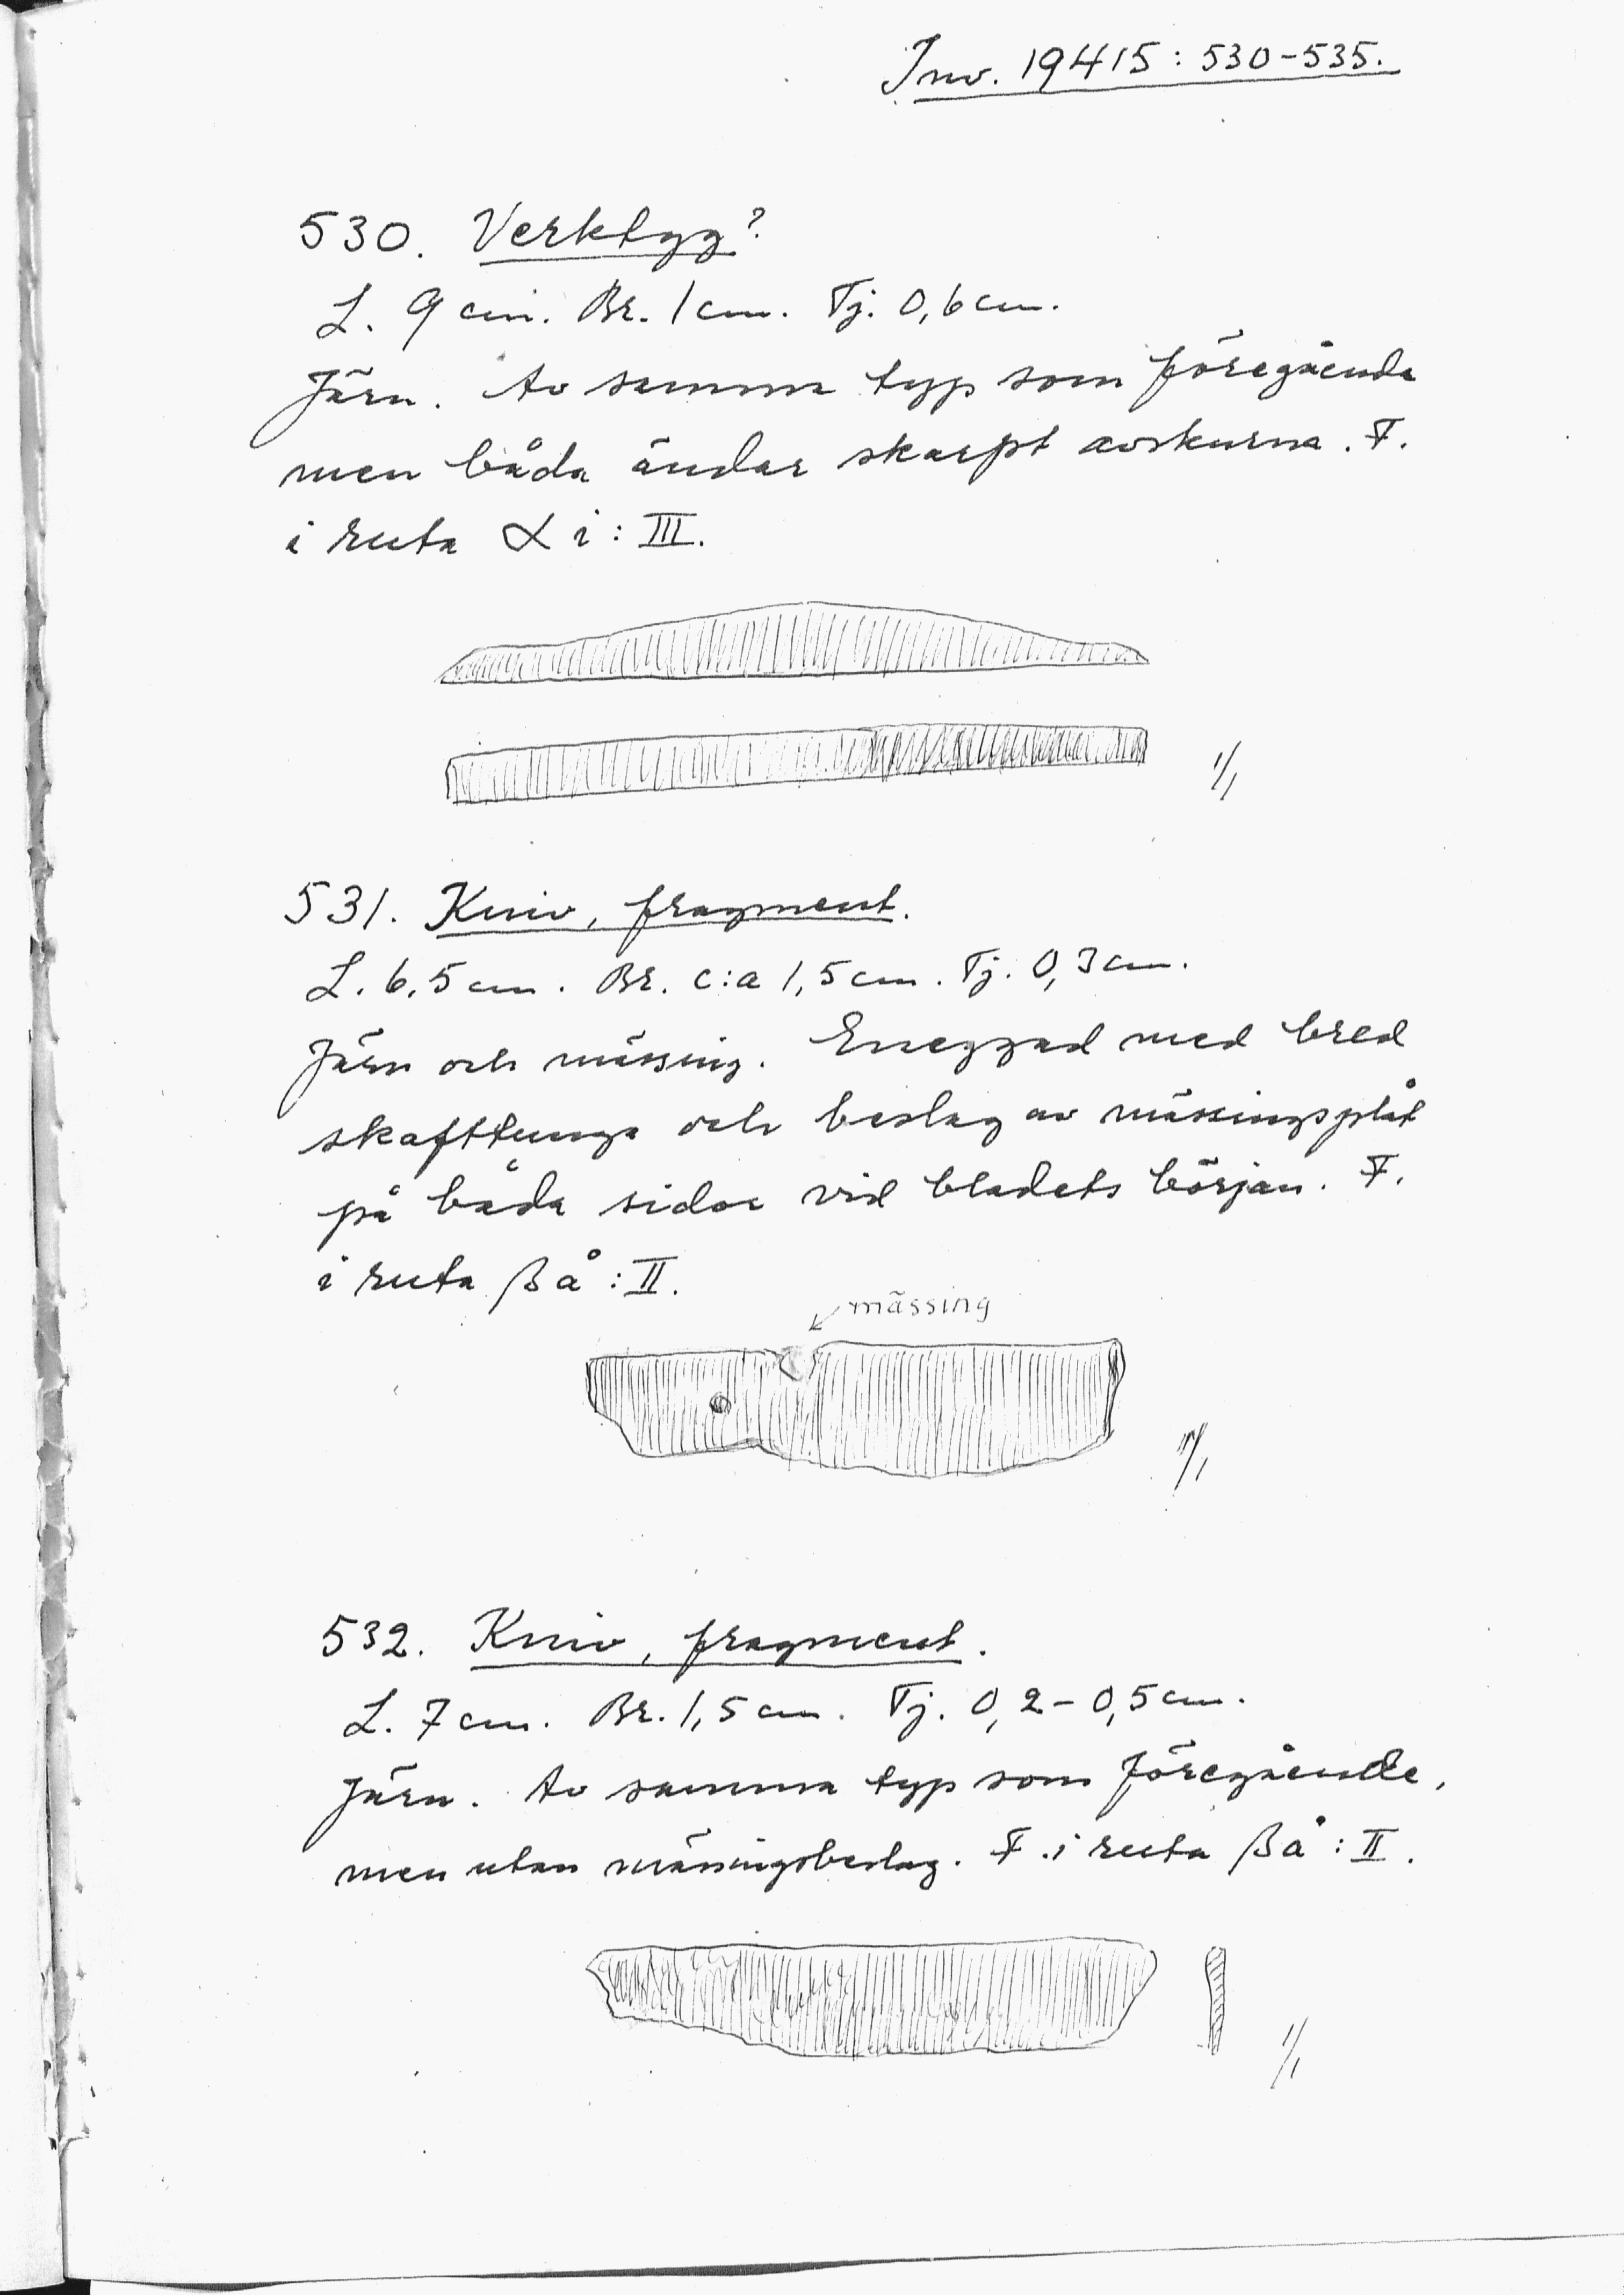 Inv. 19415: 530-535.
530. Verktyg?
L. 9 cm. Br. 1 cm. Tj. 0,6 cm.
Järn. Av samma typ som föregående
men båda ändar skarpt avskurna. F.
i ruta α i: III.
1/1
531. Kniv, fragment.
L. 6,5 cm. Br. c:a 1,5 cm. Tj. 0,3 cm.
Järn och mässing. Eneggad med bred
skafttunga och beslag av mässingsplåt
på båda sidor vid bladets början. F.
i ruta β å: II.
mässing
1/1
532. Kniv, fragment.
L. 7 cm. Br. 1,5 cm. Tj. 0,2-0,5 cm.
Järn. Av samma typ som föregående,
men utan mässingsbeslag. F. i ruta β å: II.
1/1